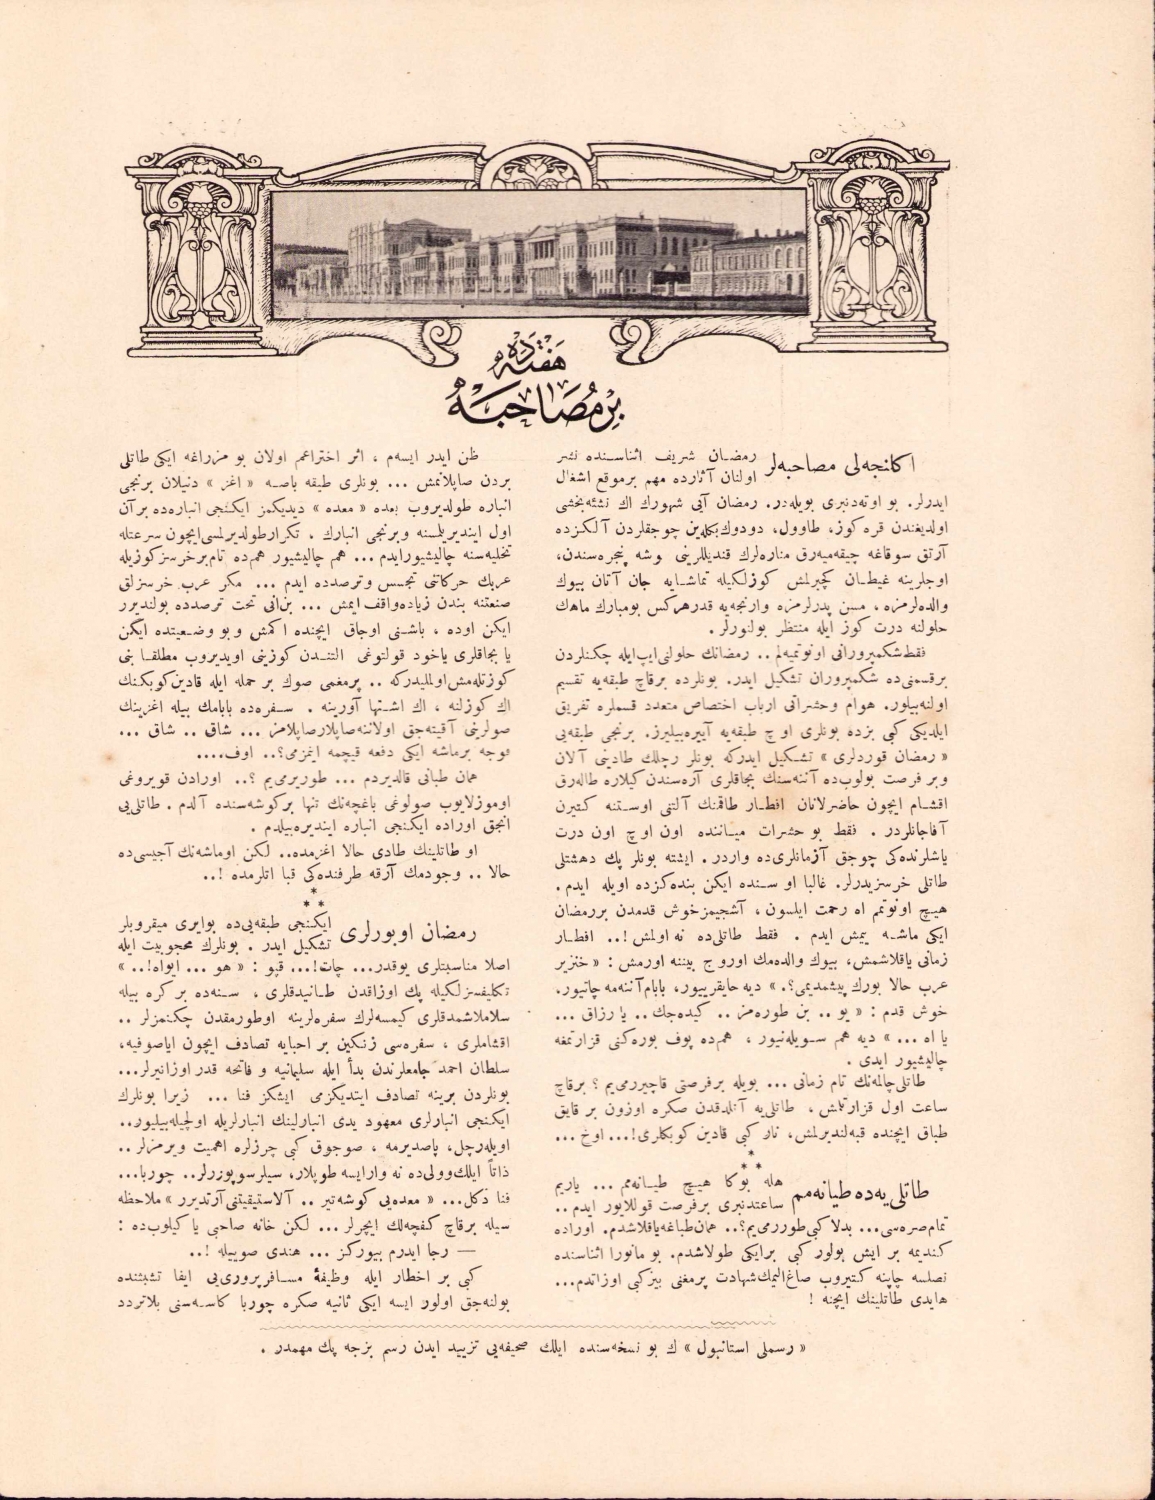 هفته‌ده
بر مصاحبه
اكلنجه‌لی مصاحبه‌لر
رمضان شریف اثناسنده نشر
اولنان آثارده مهم برموقع اشغال
ایدرلر. بو اوته‌دنبری بویله‌در. رمضان آیی شهورك اك نشئه‌بخشی
اولدیغندن قره كوز، طاوول، دودوك بكله‌ین چوجقلردن آلكزده
آرتق سوقاغه چیقه‌میه‌رق مناره‌لرك قندیللرینی وشه پنجره‌سندن،
اوجلرینه غیطان كچیرلمش كوزلكیله تماشایه جان آتان بیوك
والده‌لرمزه ، مسن پدرلرمزه وارنجه‌یه قدر هركس بومبارك ماهك
حلولنه درت كوز ایله منتظر بولنورلر .
فقط شكمپورانی اونوتمیه‌لم .. رمضانك حلولنی ایپ ایله چكنلردن
برقسمنی‌ده شكمپروران تشكیل ایدر. بونلرده برقاچ طبقه‌یه تقسیم
اولنه‌بیلور. هوام وحشراتی ارباب اختصاص متعدد قسملره تفریق
ایلدیكی كبی بزده بونلری اوچ طبقه‌یه آییره‌بیلیرز. برنجی طبقه‌یی
« رمضان قوردلری » تشكیل ایدركه بونلر رچلك طادینی آلان
وبر فرصت بولوب‌ده آننه‌سنك بجاقلری آره‌سندن كیلاره طاله‌رق
اقشام ایچون حاضرلانان افطار طاقمنك آلتنی اوستنه كتیرن
آفاجانلردر . فقط بو حشرات میاننده اون اوچ اون درت
یاشلرنده‌كی چوجق آزمانلری‌ده واردر. ایشته بونلر پك دهشتلی
طاتلی خرسزیدرلر. غالبا او سنده ایكن بنده كزده اویله ایدم .
هیچ اونوتمم اه رحمت ایلسون ، آشجیمز خوش قدمدن بررمضان
ایكی ماشه یمش ایدم . فقط طاتلی‌ده نه اولمش !.. افطار
زمانی یاقلاشمش، بیوك والده‌مك اوروج بیننه اورمش : « خنزیر
عرب حالا بورك پیشمدیمی؟. » دیه حایقرییور، بابام آننه‌مه چاتیور.
خوش قدم : « یو .. بن طوره‌مز .. كیده‌جك .. یا رزاق ...
یا اه ... » دیه هم سویله‌نیور ، هم‌ده پوف بوره‌كنی قزارتمغه
چالیشیور ایدی .
طاتلی چالمه‌نك تام زمانی ... بویله برفرصتی قاچیررمی‌یم ؟ برقاچ
ساعت اول قزارتلمش ، طاتلی‌یه آتلدقدن صكره اوزون بر قایق
طباق ایچنده قبه‌لندیرلمش، نار كبی قادین كوبكلری!... اوخ ...
* * *
طاتلی یه‌ده طیانه‌مم
هله بوكا هیچ طیانه‌مم ... یاریم
ساعتدنبری برفرصت قوللایور ایدم ..
تمام صره‌سی... بدلا كبی طوررمی‌یم؟.. همان طباغه یاقلاشدم. اوراده
كندیمه بر ایش بولور كبی برایكی طولاشدم. بو مانورا اثناسنده
نصلسه چاپنه كتیروب صاغ الیمك شهادت پرمغنی بیز كبی اوزاتدم...
هایدی طاتلینك ایچنه !
ظن ایدر ایسه‌م ، اثر اختراعم اولان بو مزراغه ایكی طاتلی
بردن صاپلانمش ... بونلری طبقه باصه « اغز » دنیلان برنجی
انباره طولدیروب بعده « معده » دیدیكمز ایكنجی انباره‌ده برآن
اول ایندیریلمسنه وبرنجی انبارك ، تكرارطولدیرلمسی ایچون سرعتله
تخلیه‌سنه چالیشیورایدم ... هم چالیشیور هم‌ده تام برخرسز كوزیله
عربك حركاتنی تجسس وترصدده ایدم ... مكر عرب خرسزلق
صنعتنه بندن زیاده‌واقف ایمش ... بنانی تحت ترصدده بولندیرر
ایكن اوده ، باشنی اوجاق ایچنده اكمش وبو وضعیتده ایكن
یا بجاقلری یاخود قولتوغی آلتندن كوزینی اویدیروب مطلقا بنی
كوزتله‌مش اولملیدركه .. پرمغمی صوك بر حمله ایله قادین كوبكنك
اك كوزلنه ، اك اشتها آورینه . سفره‌ده بابامك بیله اغزینك
صولرینی آقیته‌جق اولاننه‌صاپلار صاپلامز ... شاق .. شاق ...
قوجه برماشه ایكی دفعه قیچمه اینمزمی؟.. اوف....
همان طبانی قالدیردم ... طوریرمی‌یم ؟.. اورادن قویروغی
اوموزلایوب صولوغی باغچه‌نك تنها بركوشه‌سنده آلدم . طاتلی‌یی
آنجق اوراده ایكنجی انباره ایندیره‌بیلدم .
او طاتلینك طادی حالا اغزمده.. لكن اوماشه‌نك آجیسی‌ده
حالا .. وجودمك آرقه طرفنده‌كی قبا اتلرمده !..
* * *
رمضان اوبورلری
ایكنجی طبقه‌یی‌ده بوایری میقروبلر
تشكیل ایدر . بونلرك محجوبیت ایله
اصلا مناسبتلری یوقدر... چات!... قپو : « هو ... ایواه!.. »
تكلیفسزلكیله پك اوزاقدن طانیدقلری ، سنه‌ده بركره بیله
سلاملاشمدقلری كیمسه‌لرك سفره‌لرینه اوطورمقدن چكنمزلر ..
اقشاملری ، سفره‌سی زنكین بر احبایه تصادف ایچون ایاصوفیه،
سلطان احمد جامعلرندن بدأ ایله سلیمانیه و فاتحه قدر اوزانیرلر...
بونلردن برینه تصادف ایتدیكزمی ایشكز فنا ... زیرا بونلرك
ایكنجی انبارلری معهود یدی انبارلینك انبارلریله اولچیله‌بیلیور..
اویله‌رچل، پاصدیرمه ، صوجوق كبی چرزلره اهمیت ویرمزلر ..
ذاتاً ایلك وولی‌ده نه وارایسه طوپلار، سیلرسوپورلر.. چوربا...
فنا دكل... « معده‌یی كوشه‌تیر .. آلاستیقیتنی آرتدیرر » ملاحظه
سیله برقاچ كفچه‌لك ایچرلر ... لكن خانه صاحبی یا كیلوب‌ده :
— رجا ایدرم بیوركز ... هندی صوییله !..
كبی بر اخطار ایله وظیفۀ مسافرپروری‌یی ایفا تشبثنده
بولنه‌جق اولور ایسه ایكی ثانیه صكره چوربا كاسه‌سنی بلاتردد
« رسملی استانبول » ك بو نسخه‌سنده ایلك صحیفه‌یی تزیید ایدن رسم بزجه پك مهمدر .